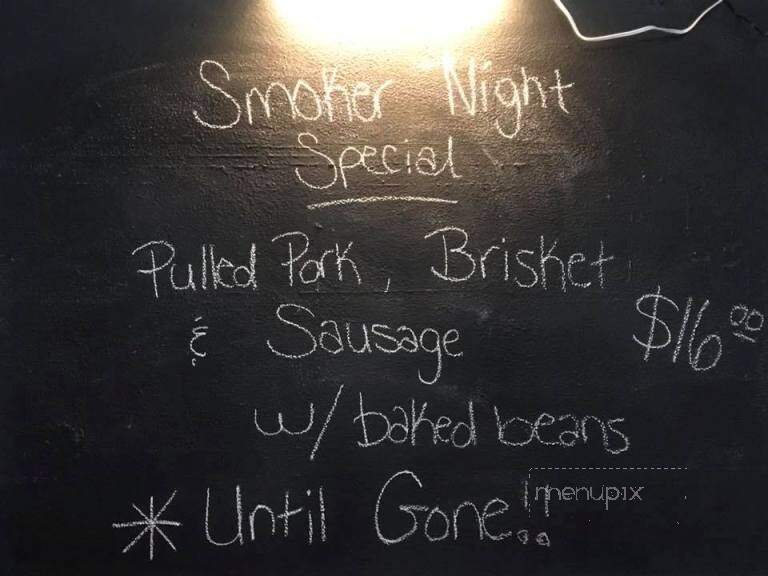 Smoker Night
Special
Pulled Pork, Brisket,
& Sausage $16.00
w/ baked beans
* Until Gone!!
menupix